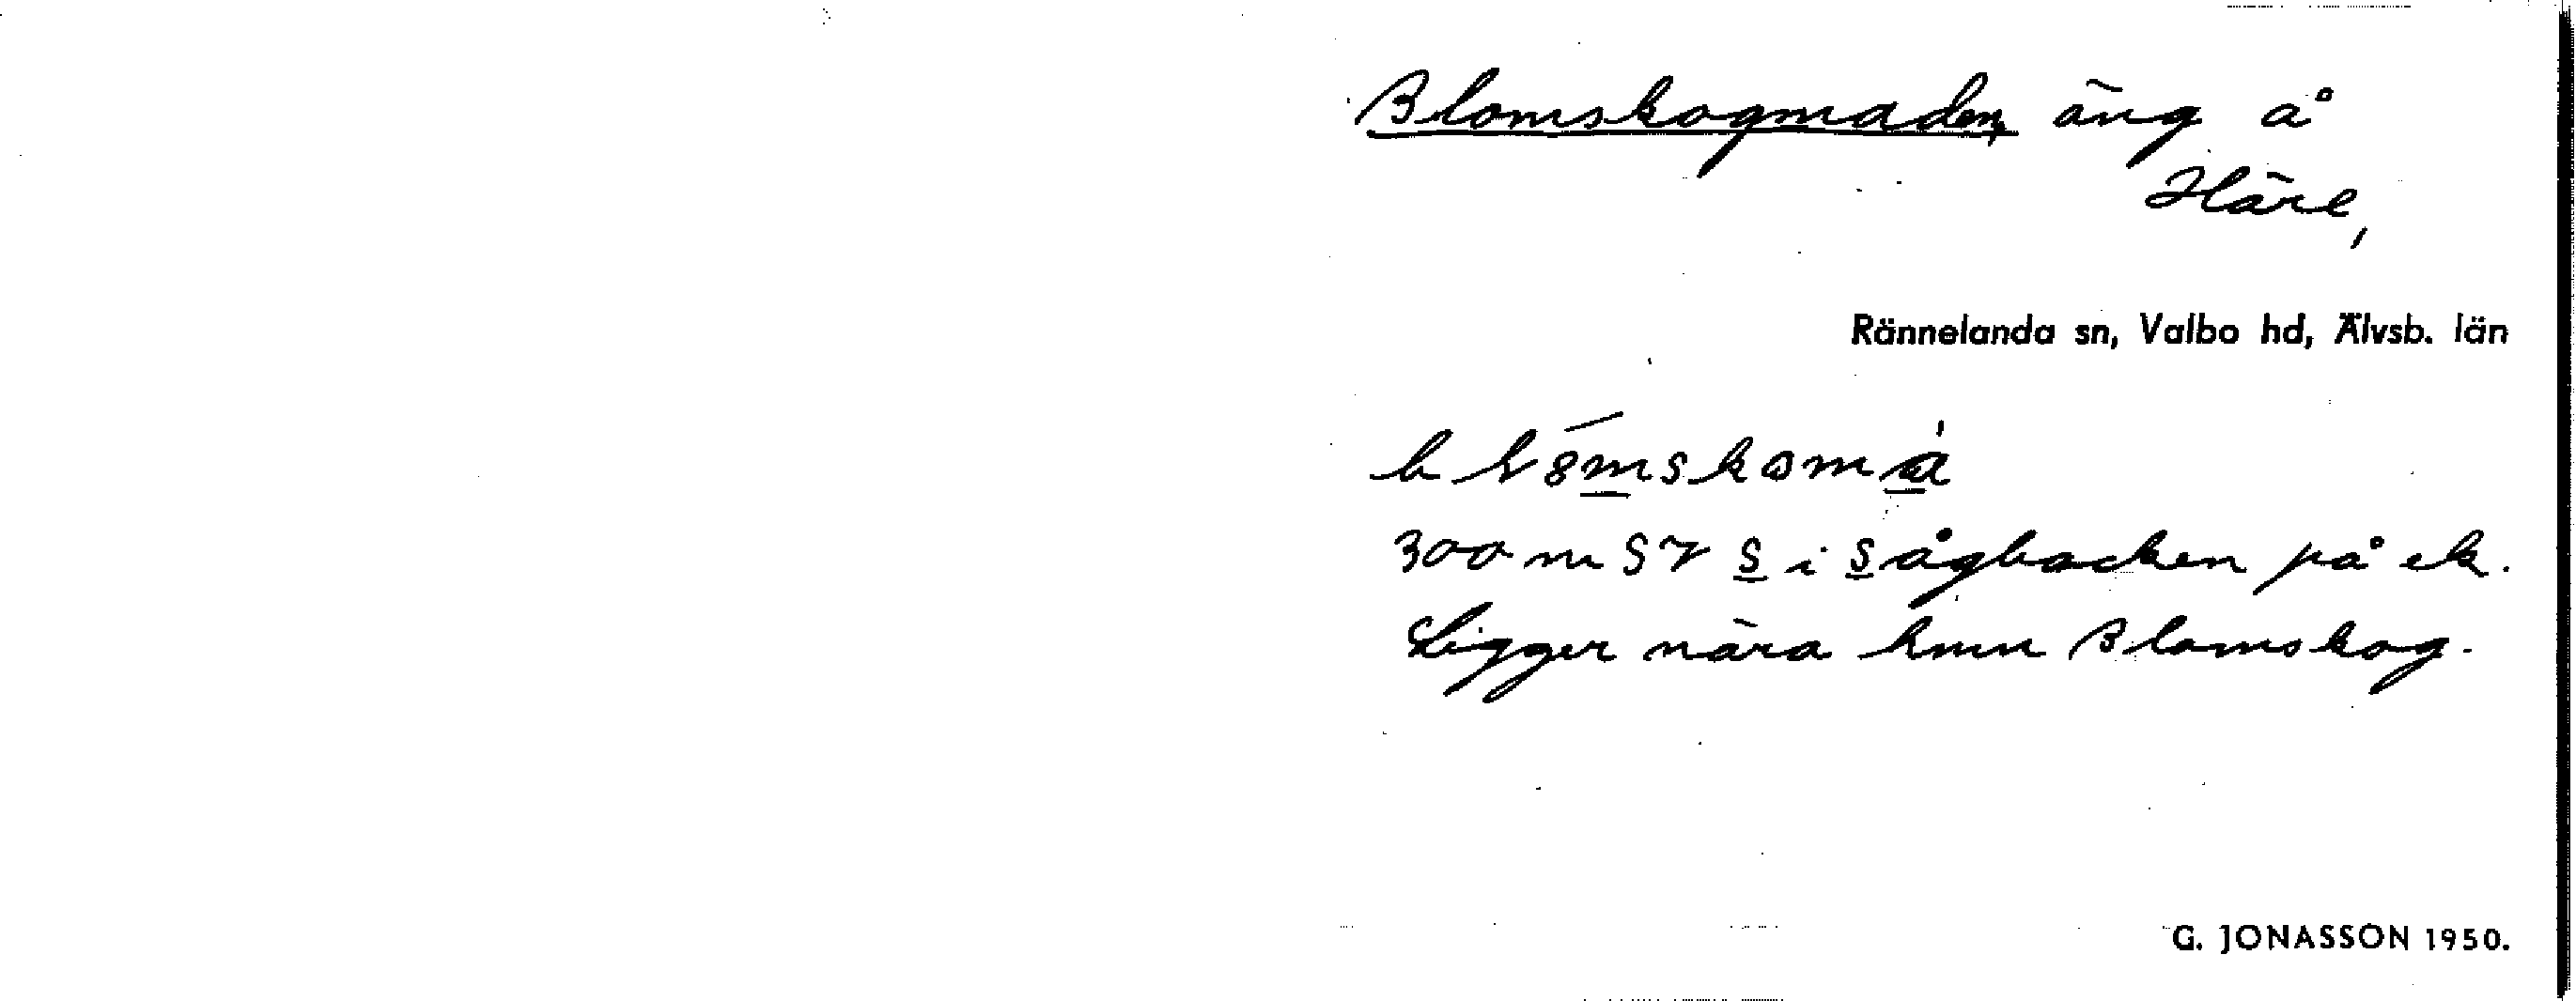 Blomskogmaden, äng å
Häre,
Rännelanda sn, Valbo hd, Älvsb. län
300 m SV S i Sågbacken på ek.
Ligger nära hmn Blomskog.
G. JONASSON 1950.